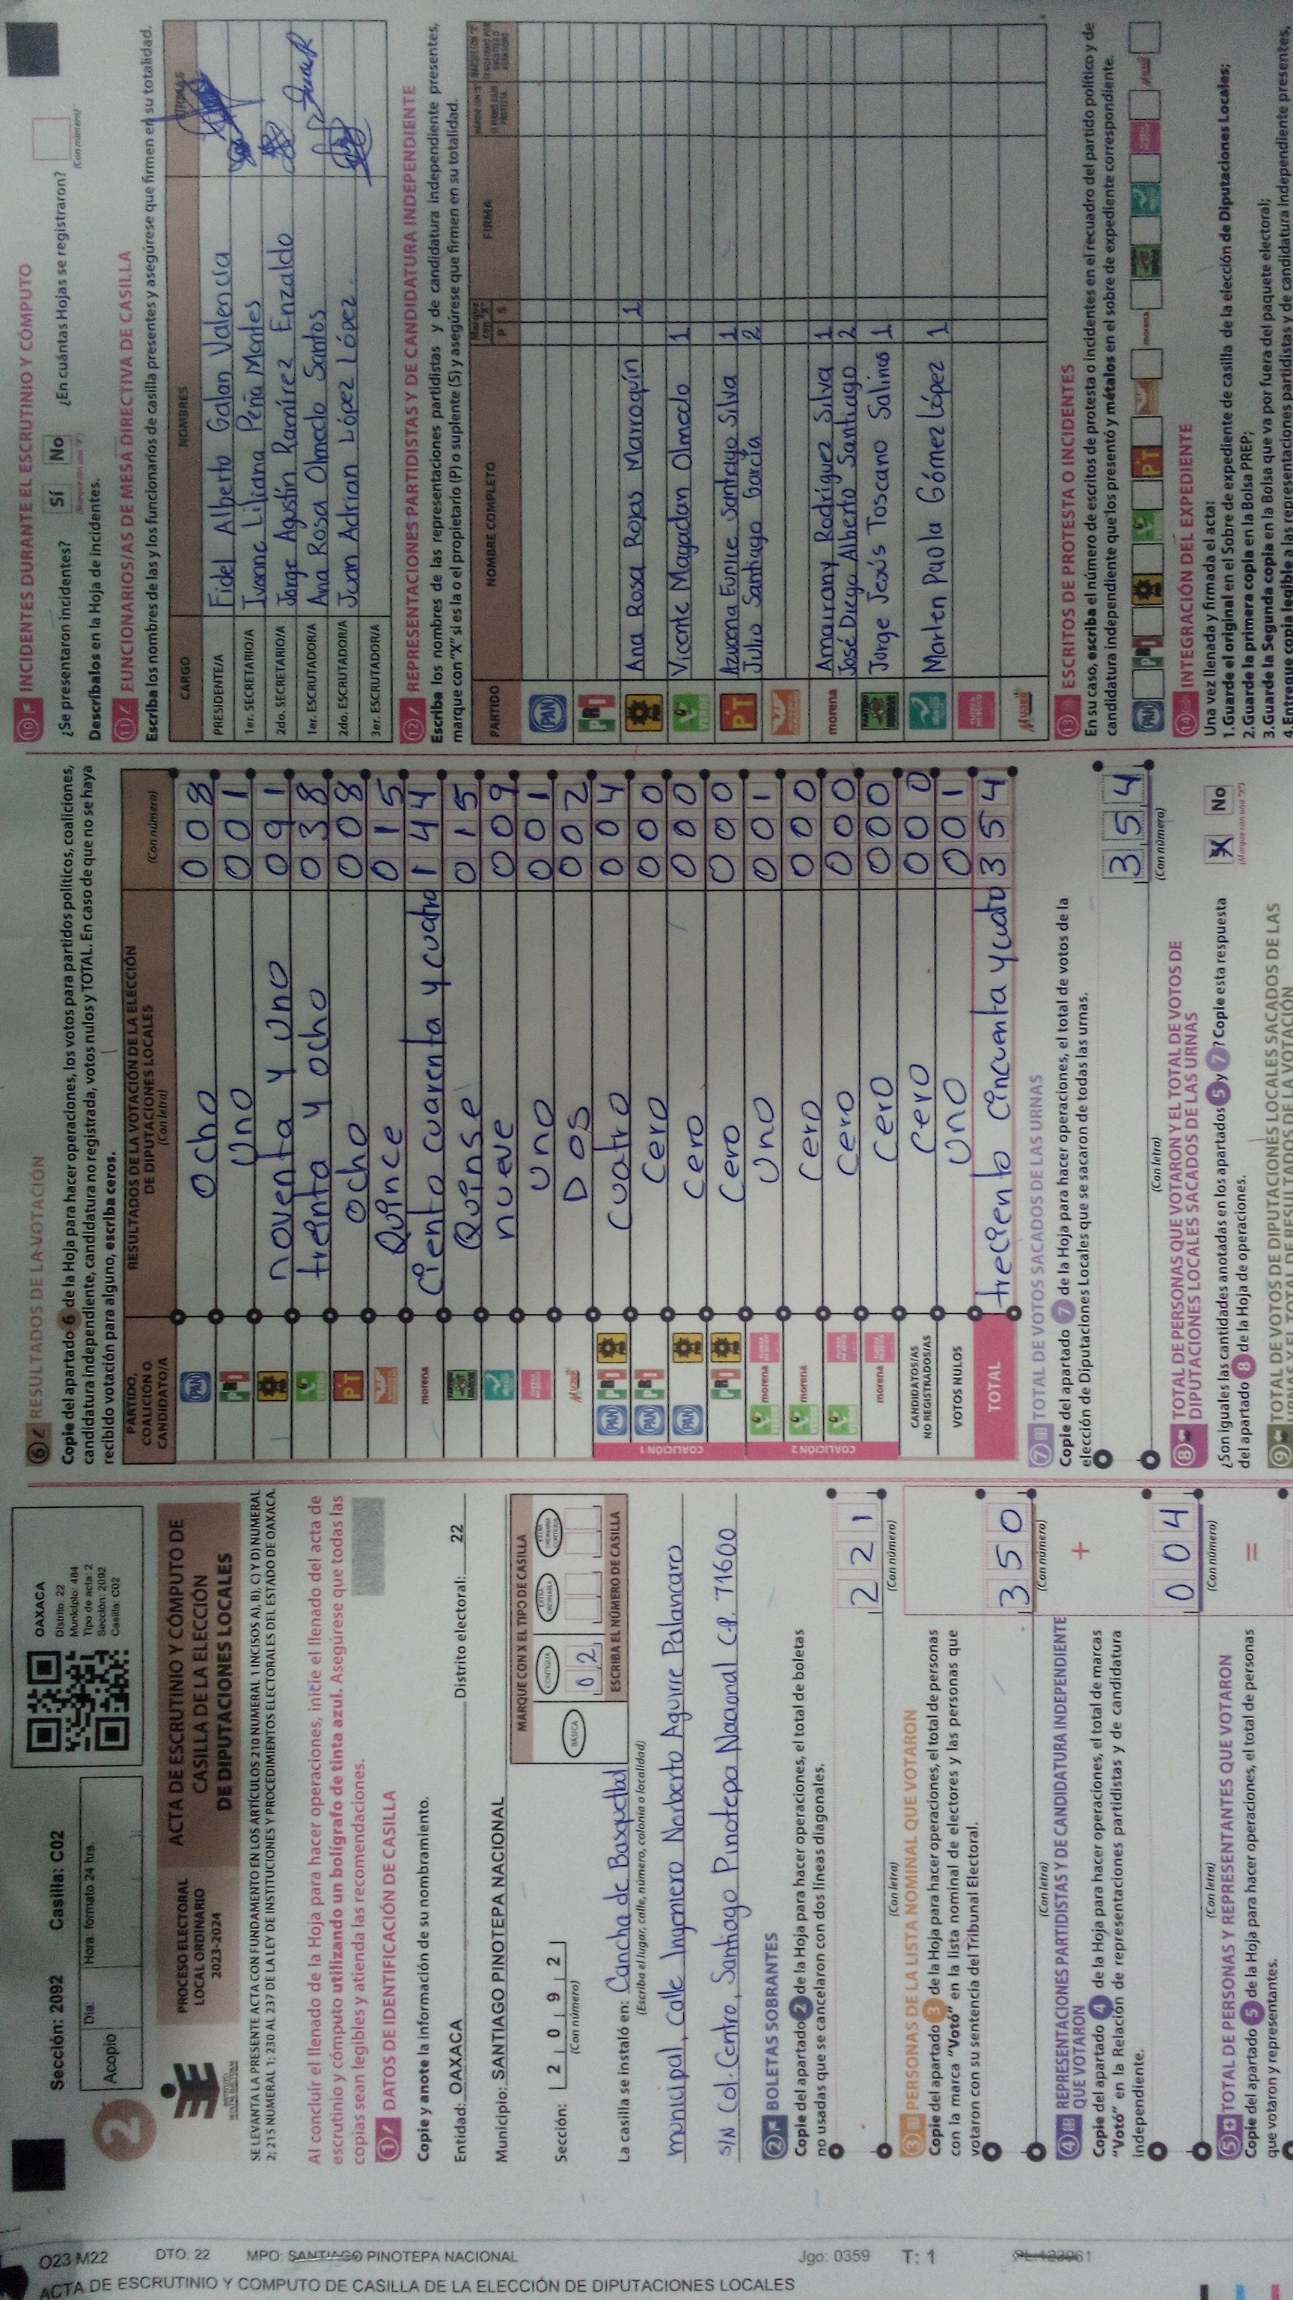 O23 M22 DTO. 22 MPO: SANTIAGO PINOTEPA NACIONAL Jgo: 0359 T: 1
ACTA DE ESCRUTINIO Y COMPUTO DE CASILLA DE LA ELECCIÓN DE DIPUTACIONES LOCALES
Sección: 2092 Casilla: C02
Acopio
Día:
Hora: formato 24 hrs.
OAXACA
Distrito: 22
Municipio: 484
Tipo de acta: 2
Sección: 2092
Casilla: C02
2
PROCESO ELECTORAL
LOCAL ORDINARIO
2023-2024
ACTA DE ESCRUTINIO Y CÓMPUTO DE
CASILLA DE LA ELECCIÓN
DE DIPUTACIONES LOCALES
SE LEVANTA LA PRESENTE ACTA CON FUNDAMENTO EN LOS ARTÍCULOS 210 NUMERAL 1 INCISOS A), B), C) Y D) NUMERAL
2; 215 NUMERAL 1; 230 AL 237 DE LA LEY DE INSTITUCIONES Y PROCEDIMIENTOS ELECTORALES DEL ESTADO DE OAXACA.
Al concluir el llenado de la Hoja para hacer operaciones, inicie el llenado del acta de
escrutinio y cómputo utilizando un bolígrafo de tinta azul. Asegúrese que todas las
copias sean legibles y atienda las recomendaciones.
1 DATOS DE IDENTIFICACIÓN DE CASILLA
Copie y anote la información de su nombramiento.
Entidad: OAXACA Distrito electoral: 22
Municipio: SANTIAGO PINOTEPA NACIONAL
Sección: 2 0 9 2
(Con número)
MARQUE CON X EL TIPO DE CASILLA
BÁSICA
CONTIGUA
EXTRA ORDINARIA
EXTRA ORDINARIA CONTIGUA
02
ESCRIBA EL NÚMERO DE CASILLA
La casilla se instaló en: Cancha de Basquetbal
(Escriba el lugar, calle, número, colonia o localidad)
municipal, calle Ingeniero Norberto Aguirre Palancares
S/N Col. Centro, Santiago Pinotepa Nacional C.P. 71600
2 BOLETAS SOBRANTES
Copie del apartado 2 de la Hoja para hacer operaciones, el total de boletas
no usadas que se cancelaron con dos líneas diagonales.
221
(Con letra) (Con número)
3 PERSONAS DE LA LISTA NOMINAL QUE VOTARON
Copie del apartado 3 de la Hoja para hacer operaciones, el total de personas
con la marca “Votó” en la lista nominal de electores y las personas que
votaron con su sentencia del Tribunal Electoral.
350
(Con letra) (Con número)
4 REPRESENTACIONES PARTIDISTAS Y DE CANDIDATURA INDEPENDIENTE
QUE VOTARON
+
Copie del apartado 4 de la Hoja para hacer operaciones, el total de marcas
“Votó” en la Relación de representaciones partidistas y de candidatura
independiente.
004
(Con letra) (Con número)
5 TOTAL DE PERSONAS Y REPRESENTANTES QUE VOTARON
=
Copie del apartado 5 de la Hoja para hacer operaciones, el total de personas
que votaron y representantes.
6 RESULTADOS DE LA VOTACIÓN
Copie del apartado 6 de la Hoja para hacer operaciones, los votos para partidos políticos, coaliciones,
candidatura independiente, candidatura no registrada, votos nulos y TOTAL. En caso de que no se haya
recibido votación para alguno, escriba ceros.
PARTIDO, COALICIÓN O CANDIDATO/A
RESULTADOS DE LA VOTACIÓN DE LA ELECCIÓN DE DIPUTACIONES LOCALES
(Con letra) (Con número)
PAN ocho 008
PRI uno 001
PRD noventa y uno 091
VERDE treinta y ocho 038
PT ocho 008
Quince 015
morena Ciento cuarenta y cuatro 144
Quinse 015
nueve 009
uno 001
Dos 002
COALICIÓN 1
PAN PRI PRD cuatro 004
PAN PRI cero 000
PAN PRD cero 000
PRI PRD cero 000
COALICIÓN 2
VERDE morena uno 001
VERDE morena cero 000
VERDE cero 000
morena cero 000
CANDIDATOS/AS NO REGISTRADOS/AS cero 000
VOTOS NULOS uno 001
TOTAL treciento cincuenta y cuatro 354
7 TOTAL DE VOTOS SACADOS DE LAS URNAS
Copie del apartado 7 de la Hoja para hacer operaciones, el total de votos de la
elección de Diputaciones Locales que se sacaron de todas las urnas.
354
(Con letra) (Con número)
8 TOTAL DE PERSONAS QUE VOTARON Y EL TOTAL DE VOTOS DE
DIPUTACIONES LOCALES SACADOS DE LAS URNAS
¿Son iguales las cantidades anotadas en los apartados 5 y 7? Copie esta respuesta
del apartado 8 de la Hoja de operaciones.
X No
(Marque con una "X")
9 TOTAL DE VOTOS DE DIPUTACIONES LOCALES SACADOS DE LAS
URNAS Y EL TOTAL DE RESULTADOS DE LA VOTACIÓN
10 INCIDENTES DURANTE EL ESCRUTINIO Y CÓMPUTO
¿Se presentaron incidentes? Sí No ¿En cuántas Hojas se registraron?
(Marque con una "X") (Con número)
Descríbalos en la Hoja de incidentes.
11 FUNCIONARIOS/AS DE MESA DIRECTIVA DE CASILLA
Escriba los nombres de las y los funcionarios de casilla presentes y asegúrese que firmen en su totalidad.
CARGO NOMBRES FIRMAS
PRESIDENTE/A Fidel Alberto Galan Valencia
1er. SECRETARIO/A Ivonne Liliana Peña Montes
2do. SECRETARIO/A Jorge Agustín Ramírez Enzaldo
1er. ESCRUTADOR/A Ana Rosa Olmedo Santos
2do. ESCRUTADOR/A Juan Adrian López López
3er. ESCRUTADOR/A
12 REPRESENTACIONES PARTIDISTAS Y DE CANDIDATURA INDEPENDIENTE
Escriba los nombres de las representaciones partidistas y de candidatura independiente presentes,
marque con "X" si es la o el propietario (P) o suplente (S) y asegúrese que firmen en su totalidad.
PARTIDO NOMBRE COMPLETO Marque con "X" P S FIRMA
PAN
PRI
PRD Ana Rosa Rojas Marroquín 1
VERDE Vicente Magadan Olmedo 1
PT Azucena Eunice Santiago Silva 1
Julio Santiago García 2
morena Amairany Rodríguez Silva 1
José Diego Alberto Santiago 2
Jorge Jesús Toscano Salinas 1
Marlen Paola Gómez López 1
13 ESCRITOS DE PROTESTA O INCIDENTES
En su caso, escriba el número de escritos de protesta o incidentes en el recuadro del partido político y de
candidatura independiente que los presentó y métalos en el sobre de expediente correspondiente.
PAN PRI PRD VERDE PT morena
14 INTEGRACIÓN DEL EXPEDIENTE
Una vez llenada y firmada el acta:
1. Guarde el original en el Sobre de expediente de casilla de la elección de Diputaciones Locales;
2. Guarde la primera copia en la Bolsa PREP;
3. Guarde la Segunda copia en la Bolsa que va por fuera del paquete electoral;
4. Entregue copia legible a las representaciones partidistas y de candidatura independiente presentes,